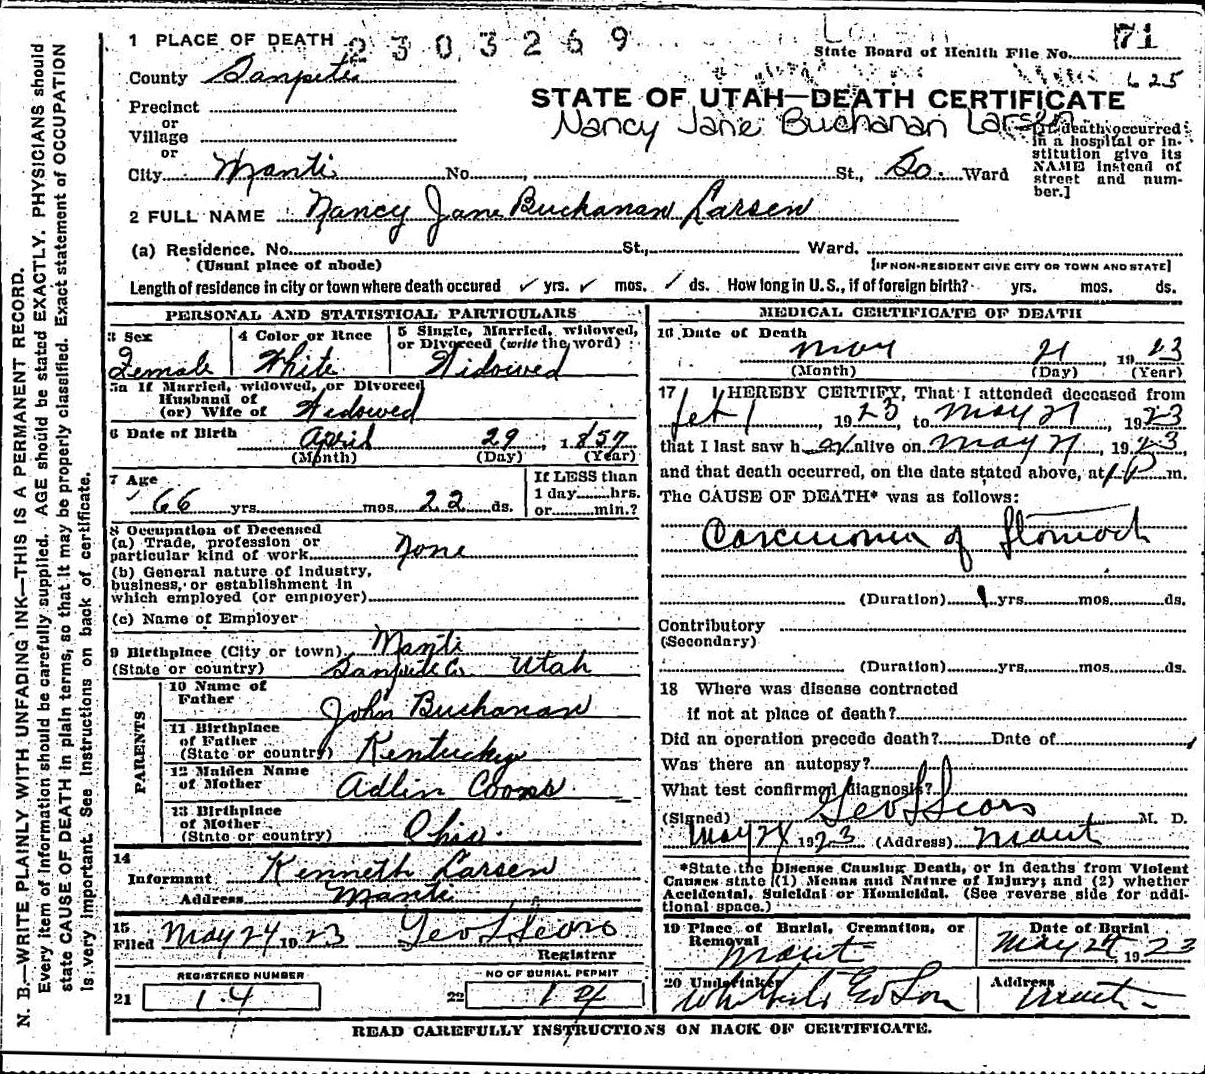 N. B.—WRITE PLAINLY WITH UNFADING INK—THIS IS A PERMANENT RECORD.
Every item of information should be carefully supplied. AGE should be stated EXACTLY. PHYSICIANS should
state CAUSE OF DEATH in plain terms, so that it may be properly classified. Exact statement of OCCUPATION
is very important. See instructions on back of certificate.
2303269
State Board of Health File No. 71
625
1 PLACE OF DEATH
County Sanpete
STATE OF UTAH—DEATH CERTIFICATE
Nancy Jane Buchanan Larsen
Precinct
or
Village
or
City Manti No. , St., So. Ward
[If death occurred in a hospital or in-
stitution give its
NAME instead of
street and num-
ber.]
2 FULL NAME Nancy Jane Buchanan Larsen
(a) Residence. No. St., Ward.
(Usual place of abode) [IF NON-RESIDENT GIVE CITY OR TOWN AND STATE]
Length of residence in city or town where death occured ✓ yrs. ✓ mos. ✓ ds. How long in U.S., if of foreign birth? yrs. mos. ds.
PERSONAL AND STATISTICAL PARTICULARS
3 Sex
Female
4 Color or Race
White
5 Single, Married, widowed,
or Divorced (write the word)
Widowed
5a If Married, widowed, or Divorced
Husband of
(or) Wife of Widowed
6 Date of Birth April 29, 1857
(Month) (Day) (Year)
7 Age
66 yrs. mos. 22 ds.
If LESS than
1 day hrs.
or min.?
8 Occupation of Deceased
(a) Trade, profession or
particular kind of work None
(b) General nature of industry,
business, or establishment in
which employed (or employer)
(c) Name of Employer
9 Birthplace (City or town) Manti
(State or country) Sanpete Co. Utah
PARENTS
10 Name of
Father John Buchanan
11 Birthplace
of Father
(State or country) Kentucky
12 Maiden Name
of Mother Adlin Coons
13 Birthplace
of Mother
(State or country) Ohio.
14
Informant Kenneth Larsen
Address Manti
15
Filed May 24 1923 Geo L Sears
Registrar
REGISTERED NUMBER
21 14
NO OF BURIAL PERMIT
22 14
MEDICAL CERTIFICATE OF DEATH
16 Date of Death
May 21, 1923
(Month) (Day) (Year)
17 I HEREBY CERTIFY, That I attended deceased from
Feb 1, 1923, to May 21, 1923
that I last saw her alive on May 21, 1923,
and that death occurred, on the date stated above, at 1 P m.
The CAUSE OF DEATH* was as follows:
Carcinoma of Stomach
(Duration) 1 yrs. mos. ds.
Contributory
(Secondary)
(Duration) yrs. mos. ds.
18 Where was disease contracted
if not at place of death?
Did an operation precede death? Date of
Was there an autopsy?
What test confirmed diagnosis?
(Signed) Geo L Sears M. D.
May 24 1923 (Address) Manti
*State the Disease Causing Death, or in deaths from Violent
Causes state (1) Means and Nature of Injury; and (2) whether
Accidental, Suicidal or Homicidal. (See reverse side for addi-
tional space.)
19 Place of Burial, Cremation, or
Removal
Manti
Date of Burial
May 24, 1923
20 Undertaker
Address
Manti
READ CAREFULLY INSTRUCTIONS ON BACK OF CERTIFICATE.